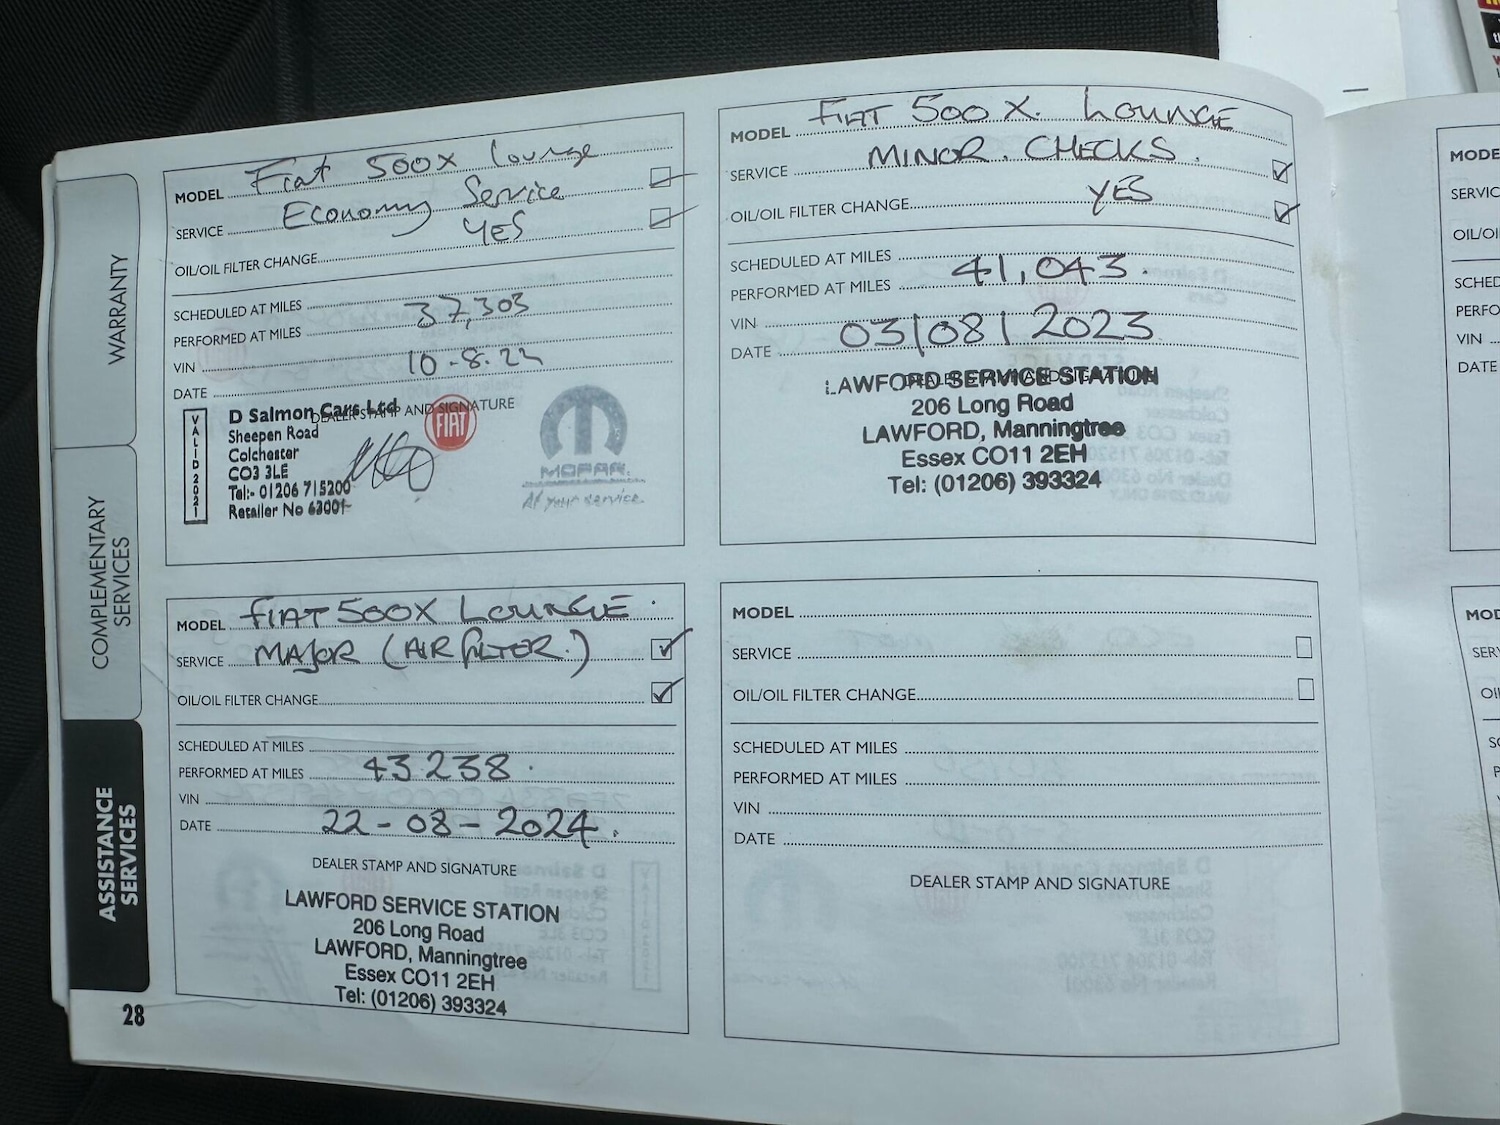 WARRANTY
COMPLEMENTARY
SERVICES
ASSISTANCE
SERVICES
28
MODEL Fiat 500X Lounge
SERVICE Economy Service
OIL/OIL FILTER CHANGE YES
SCHEDULED AT MILES
PERFORMED AT MILES 37,303
VIN
DATE 10-8.22
DEALER STAMP AND SIGNATURE
VALID 2021
D Salmon Cars Ltd
Sheepen Road
Colchester
CO3 3LE
Tel:- 01206 715200
Retailer No 63001
FIAT
MOPAR
At your service.
MODEL FIAT 500X. LOUNGE
SERVICE MINOR. CHECKS.
OIL/OIL FILTER CHANGE YES
SCHEDULED AT MILES
PERFORMED AT MILES 41,043.
VIN
DATE 03/08/2023
DEALER STAMP AND SIGNATURE
LAWFORD SERVICE STATION
206 Long Road
LAWFORD, Manningtree
Essex CO11 2EH
Tel: (01206) 393324
MODEL FIAT 500X LOUNGE.
SERVICE MAJOR (AIR FILTER.)
OIL/OIL FILTER CHANGE
SCHEDULED AT MILES
PERFORMED AT MILES 43238.
VIN
DATE 22-08-2024.
DEALER STAMP AND SIGNATURE
LAWFORD SERVICE STATION
206 Long Road
LAWFORD, Manningtree
Essex CO11 2EH
Tel: (01206) 393324
MODEL
SERVICE
OIL/OIL FILTER CHANGE
SCHEDULED AT MILES
PERFORMED AT MILES
VIN
DATE
DEALER STAMP AND SIGNATURE
MODE
SERVIC
OIL/OI
SCHED
PERFO
VIN
DATE
MOD
SER